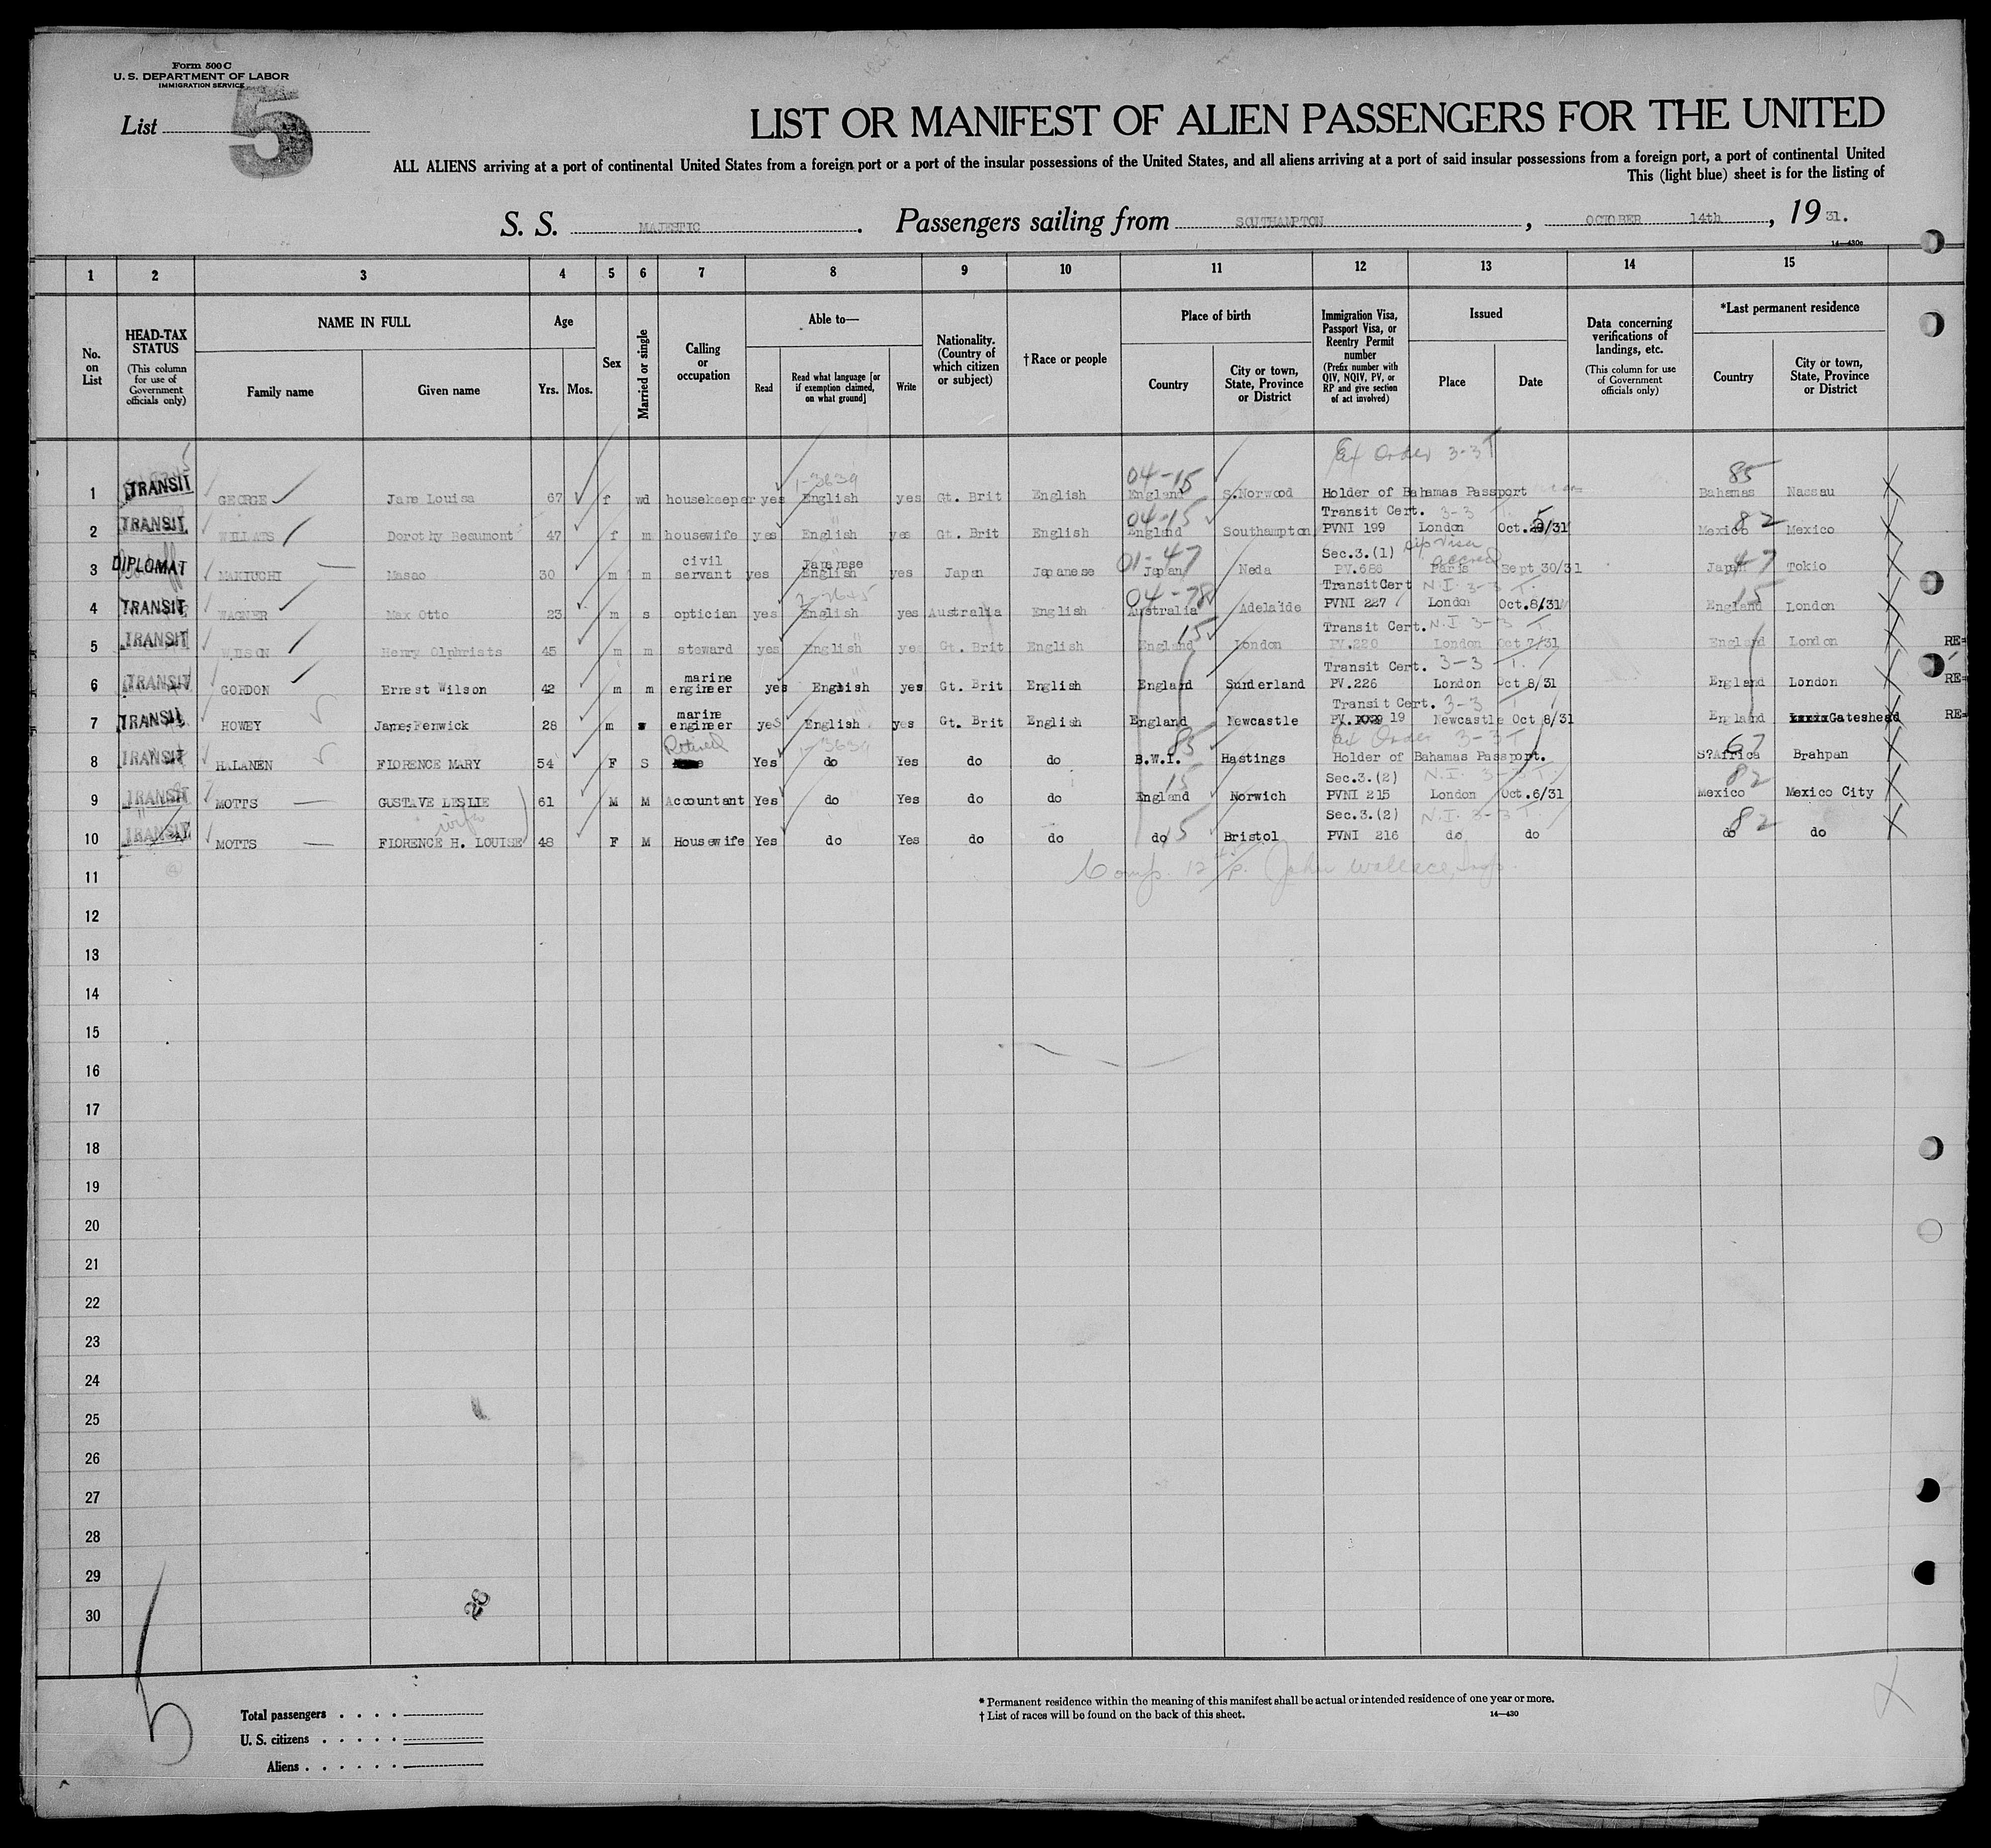 Form 500 C
U. S. DEPARTMENT OF LABOR
IMMIGRATION SERVICE
List 5
LIST OR MANIFEST OF ALIEN PASSENGERS FOR THE UNITED
ALL ALIENS arriving at a port of continental United States from a foreign port or a port of the insular possessions of the United States, and all aliens arriving at a port of said insular possessions from a foreign port, a port of continental United
This (light blue) sheet is for the listing of
S. S. MAJESTIC. Passengers sailing from SOUTHAMPTON, OCTOBER 14th, 19 31.
14—430c
1 2 3 4 5 6 7 8 9 10 11 12 13 14 15
No. on List
HEAD-TAX STATUS
(This column for use of Government officials only)
NAME IN FULL
Family name Given name
Age
Yrs. Mos.
Sex
Married or single
Calling or occupation
Able to—
Read
Read what language [or if exemption claimed, on what ground]
Write
Nationality. (Country of which citizen or subject)
†Race or people
Place of birth
Country
City or town, State, Province or District
Immigration Visa, Passport Visa, or Reentry Permit number
(Prefix number with QIV, NQIV, PV, or RP and give section of act involved)
Issued
Place Date
Data concerning verifications of landings, etc.
(This column for use of Government officials only)
*Last permanent residence
Country
City or town, State, Province or District
Ex Order 3-3 T
1-3639 04-15 85
1 TRANSIT GEORGE Jane Louisa 67 f wd housekeeper yes English yes Gt. Brit English England S.Norwood Holder of Bahamas Passport Bahamas Nassau
04-15 Transit Cert. 3-3 T. 5 82
2 TRANSIT WILLATS Dorothy Beaumont 47 f m housewife yes English yes Gt. Brit English England Southampton PVNI 199 London Oct. /31 Mexico Mexico
01-47 Sec.3.(1) dip visa 47
3 DIPLOMAT MAKIUCHI Masao 30 m m civil servant yes Japanese English yes Japan Japanese Japan Neda PV.686 Paris Sept 30/31 Japan Tokio
2-2645 04-78 TransitCert N.I. 3-3 T. 15
4 TRANSIT WAGNER Max Otto 23 m s optician yes English yes Australia English Australia Adelaide PVNI 227 London Oct.8/31 England London
15 Transit Cert. N.I 3-3 T
5 TRANSIT WILSON Henry Olphriats 45 m m steward yes English yes Gt. Brit English England London PV.220 London Oct 7/31 England London RE=
Transit Cert. 3-3 T.
6 TRANSIT GORDON Ernest Wilson 42 m m marine engineer yes English yes Gt. Brit English England Sunderland PV.226 London Oct 8/31 England London RE=
Transit Cert. 3-3 T
7 TRANSIT HOWEY James Fenwick 28 m marine engineer yes English yes Gt. Brit English England Newcastle PV. 19 Newcastle Oct 8/31 England Gateshead RE=
Retired 1-3639 85 Ex Order 3-3 T 67
8 TRANSIT HALANEN FLORENCE MARY 54 F S Yes do Yes do do B.W.I. Hastings Holder of Bahamas Passport. S?Africa Brahpan
15 Sec.3.(2) N.I. 3-3 T. 82
9 TRANSIT MOTTS GUSTAVE LESLIE 61 M M Accountant Yes do Yes do do England Norwich PVNI 215 London Oct.6/31 Mexico Mexico City
wife 15 Sec.3.(2) N.I. 3-3 T. 82
10 TRANSIT MOTTS FLORENCE H. LOUISE 48 F M Housewife Yes do Yes do do do Bristol PVNI 216 do do do do
11 Comp. 12 45/P. John Wallace, Insp.
12
13
14
15
16
17
18
19
20
21
22
23
24
25
26
27
28
29
30
Total passengers
U. S. citizens
Aliens
* Permanent residence within the meaning of this manifest shall be actual or intended residence of one year or more.
† List of races will be found on the back of this sheet.
14—430